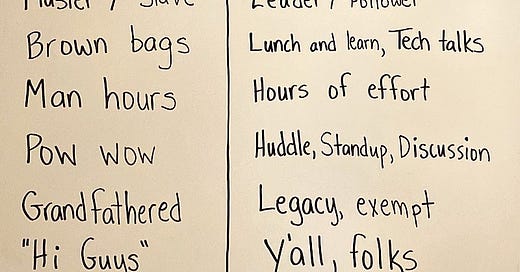 Master / Slave
Leader / Follower
Brown bags
Lunch and learn, Tech talks
Man hours
Hours of effort
Pow wow
Huddle, Standup, Discussion
Grandfathered
Legacy, exempt
"Hi Guys"
Y'all, folks